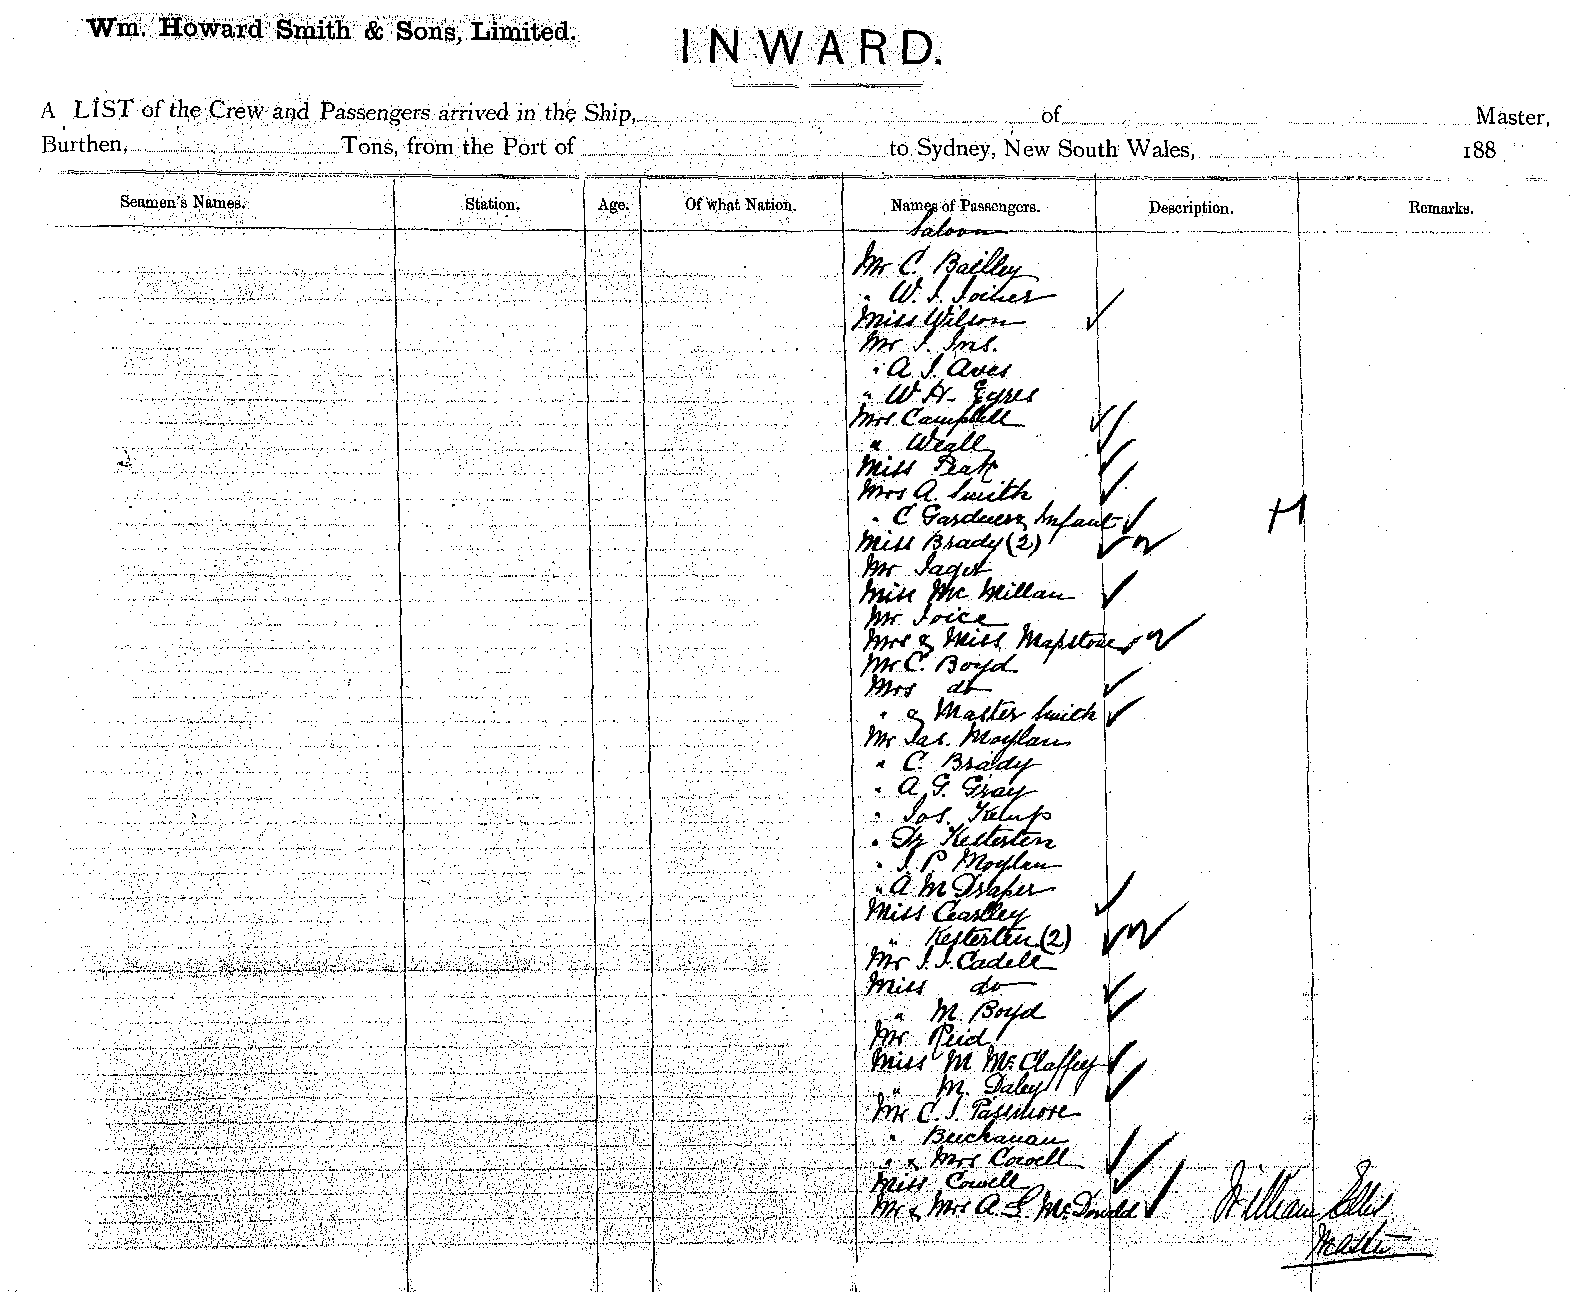 Wm. Howard Smith & Sons, Limited.
INWARD.
A LIST of the Crew and Passengers arrived in the Ship, of Master,
Burthen, Tons, from the Port of to Sydney, New South Wales, 188
Seamen's Names. Station. Age. Of what Nation. Names of Passengers. Description. Remarks.
Saloon
Mr C. Bailley
" W. J. Joiner
Miss Wilson
Mr J.
" A J. Aves
" W H. Eyres
Mrs Campbell
" Weall
Miss Peak
Mrs A. Smith
" C Gardner & Infant
H
Miss Brady (2)
Mr
Miss Mc Millan
Mr Joice
Mrs & Miss Mapstone 2
Mr C. Boyd
Mrs do
" & Master Smith
Mr Jas. Moylan
" C. Brady
" A G. Gray
" Jos. Kemp
" Kesterten
" J. P Moylan
" A M Draper
Miss Ceasley
" Kesterten (2)
Mr J. J. Cadell
Miss do
" M. Boyd
Mr Reid
Miss M McClaffey
" M. Daley
Mr C. J. Passmore
" Buchanan
" & Mrs Cowell
Miss Cowell
Mr & Mrs A. L. McDonald
William Ellis
Master